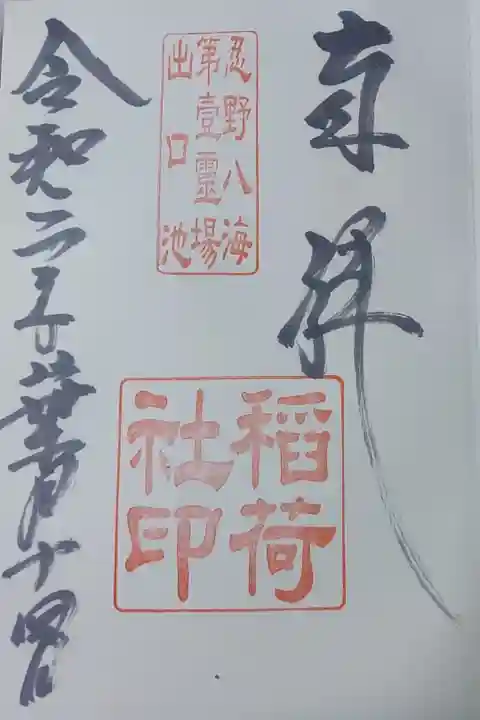 奉拝
忍野八海
第壹靈場
出口池
稲荷
社印
令和二年葉月十四日